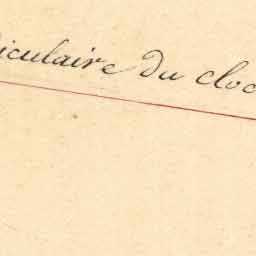 iculaire du cloc